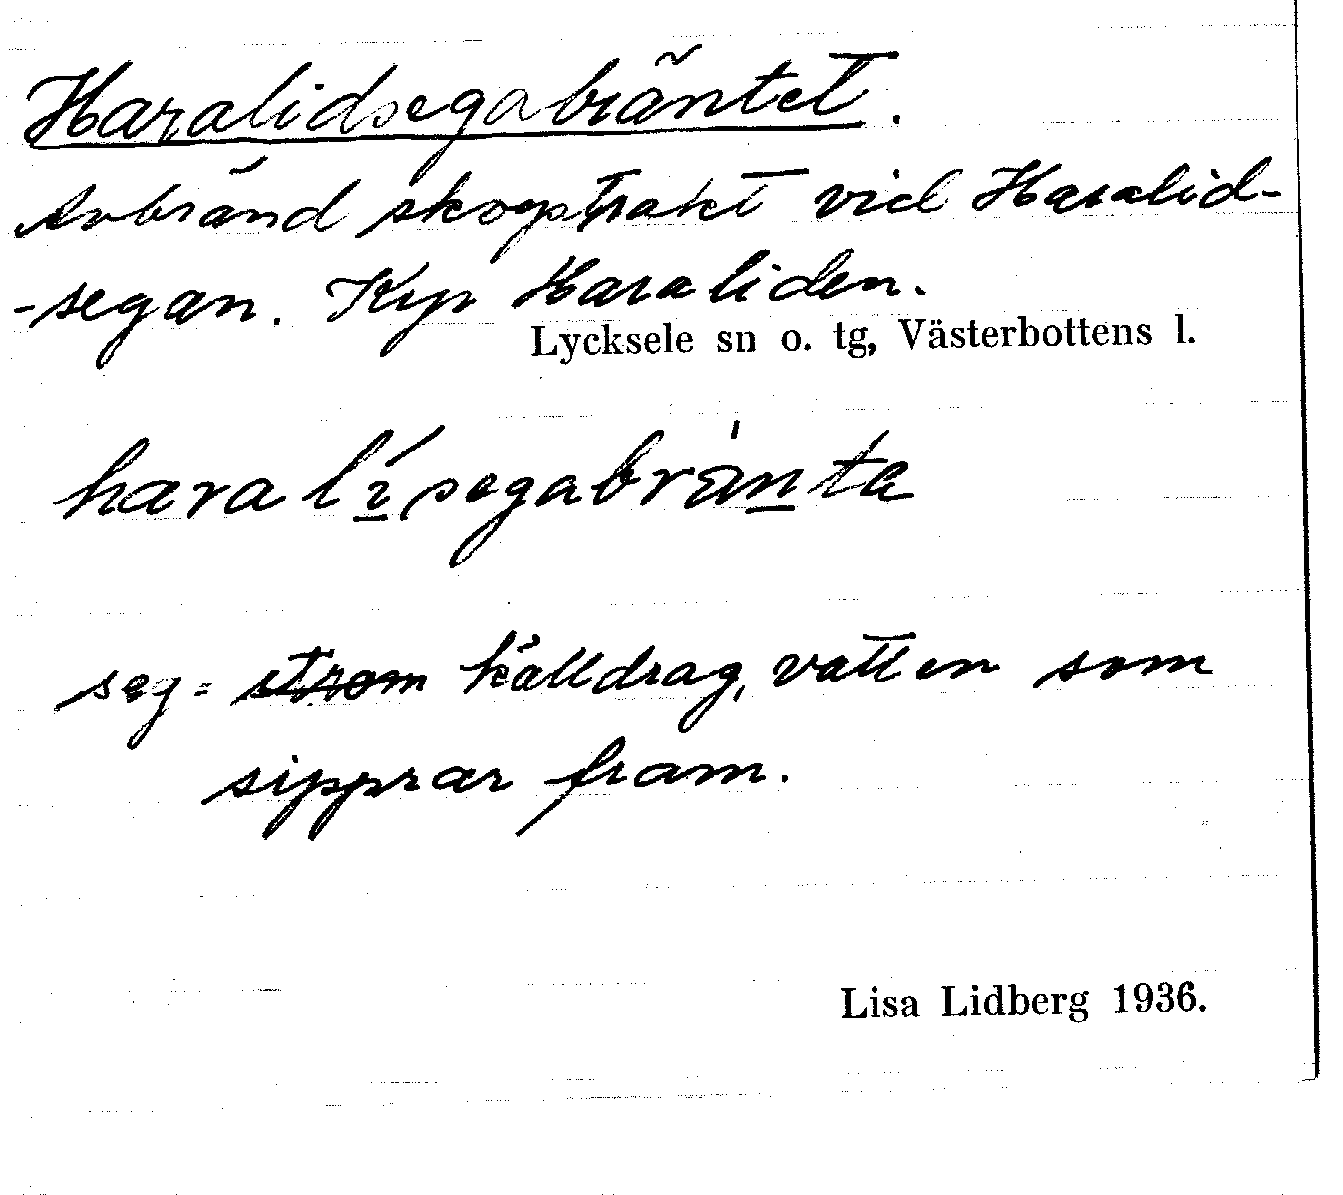 Haralidsegabräntet.
Avbränd skogstrakt vid Haralid-
-segan. Kyp Haraliden.
Lycksele sn o. tg, Västerbottens l.
haralísegabränta
seg = strom källdrag, vatten som
sipprar fram.
Lisa Lidberg 1936.